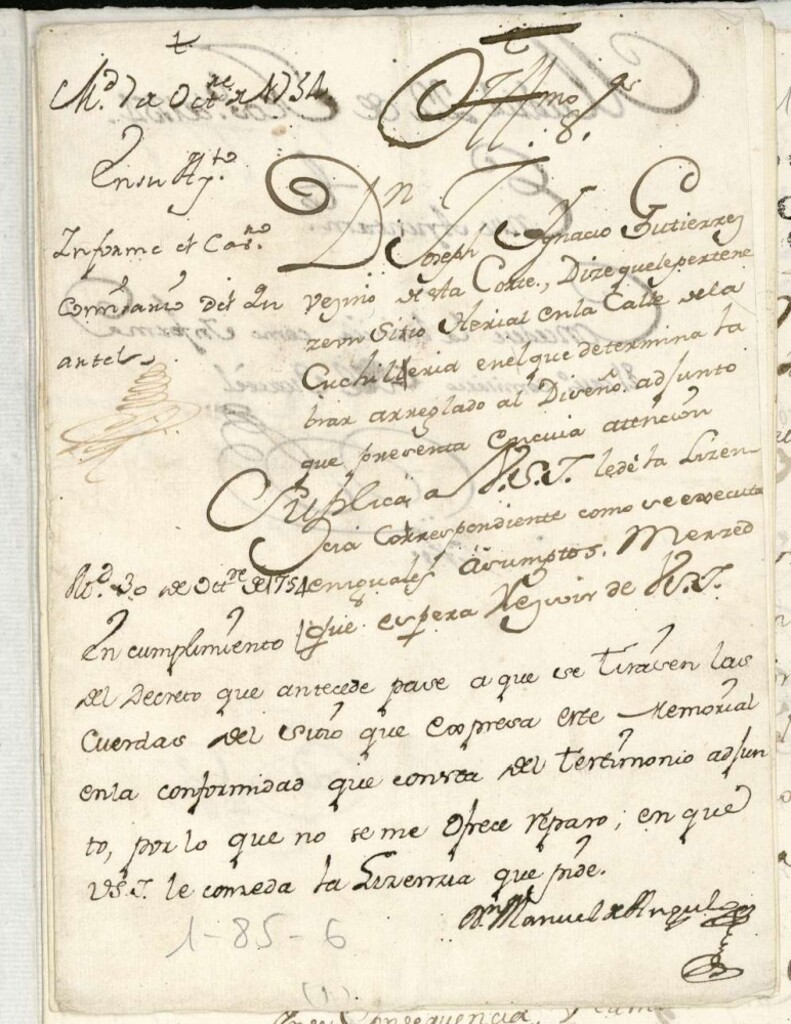 M.d 7 de Oct.re de 1754
En su Ay.to
Informe el Cav.ro
Comisario del Qu
artel
Ill.mo S.or
Dn Joseph Ygnacio Gutierrez
vezino de esta Corte, Dize que le pertene
ze un Sitio Herial en la Calle de la
Cuchilleria en el que determina la
brar arreglado al Diseño adjunto
que presenta en cuia atencion
Suplica a V.S.I. le dé la Lizen
cia Correspondiente como se executa
en iguales asumptos. Merzed
que espera Rezivir de V.S.I.
M.d 30 de Oct.re de 1754
En cumplimiento
del Decreto que antecede pase a que se tirasen las
Cuerdas del sitio que Expresa este Memorial
en la conformidad que consta del testimonio adjun
to, por lo que no se me ofrece reparo, en que
V.S.I. le conzeda la Lizenzia que pide.
Dn Manuel de Angulo
1-85-6
(1)